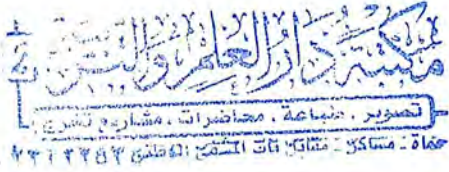 مكتبة دار العلم والنشر
تصوير . طباعة . محاضرات . مشاريع تخرج
حماة - مساكن - مقابل المشفى الوطني